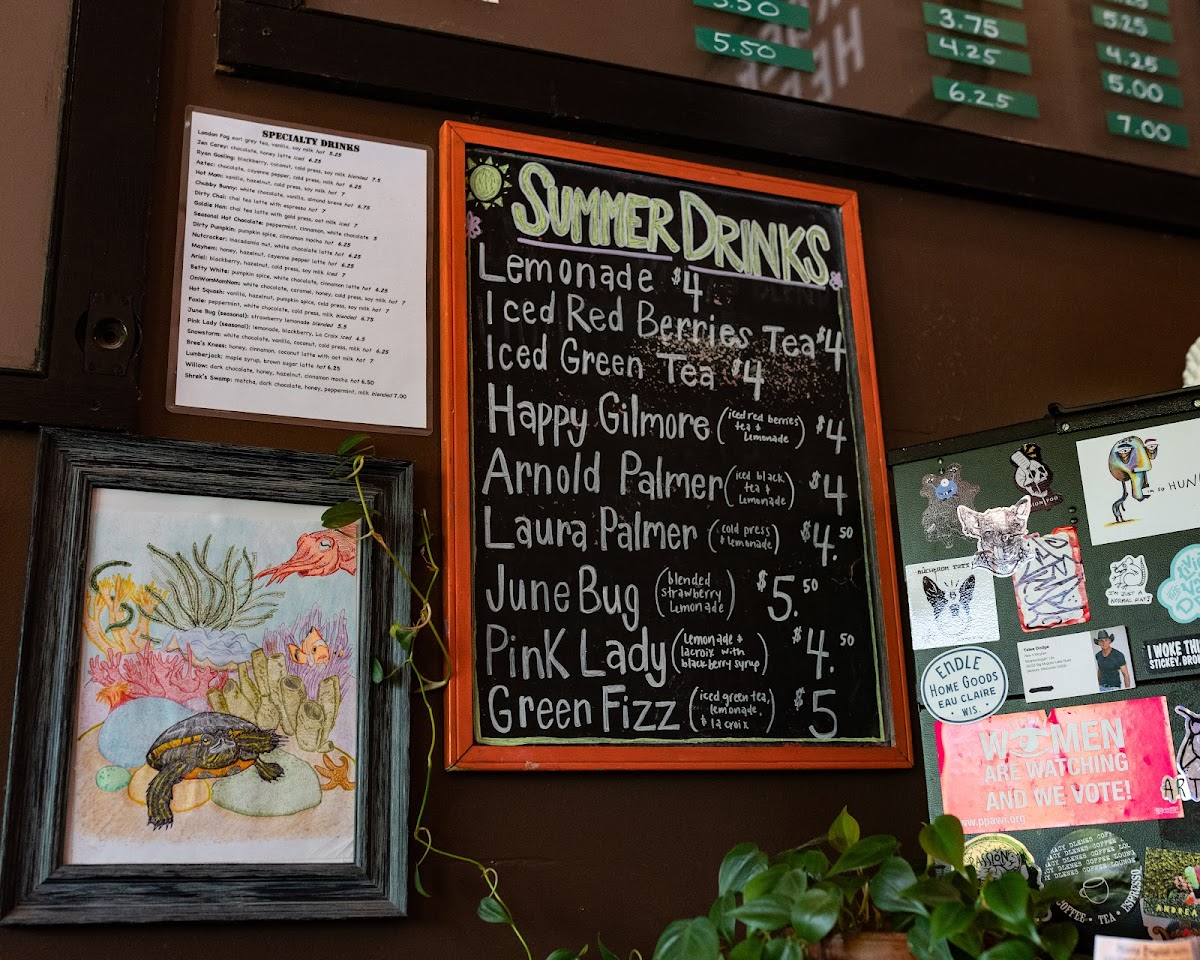 5.50
5.50
3.75
4.25
6.25
5.25
4.25
5.00
7.00
SPECIALTY DRINKS
London Fog earl grey tea, vanilla, soy milk hot 5.25
Jan Cerey: chocolate, honey latte iced 6.25
Ryan Gosling: blackberry, coconut, cold press, soy milk blended 7.5
Aztec: chocolate, cayenne pepper, cold press, milk hot 6.25
Hot Mom: vanilla, hazelnut, cold press, soy milk hot 7
Chubby Bunny: white chocolate, vanilla, almond breve hot 6.75
Dirty Chai: chai tea latte with espresso hot 7
Goldie Han: chai tea latte with gold press, oat milk iced 7
Seasonal Hot Chocolate: peppermint, cinnamon, white chocolate 5
Dirty Pumpkin: pumpkin spice, cinnamon mocha hot 6.25
Nutcracker: macadamia nut, white chocolate latte hot 6.25
Mayhem: honey, hazelnut, cayenne pepper latte hot 6.25
Ariel: blackberry, hazelnut, cold press, soy milk iced 7
Betty White: pumpkin spice, white chocolate, cinnamon latte hot 6.25
OmWomMomNom: white chocolate, caramel, honey, cold press, soy milk hot 7
Hot Squash: vanilla, hazelnut, pumpkin spice, cold press, soy milk hot 7
Foxie: peppermint, white chocolate, cold press, milk blended 6.75
June Bug (seasonal): strawberry lemonade blended 5.5
Pink Lady (seasonal): lemonade, blackberry, La Croix iced 4.5
Snowstorm: white chocolate, vanilla, coconut, cold press, milk hot 6.25
Brea's Knees: honey, cinnamon, coconut latte with oat milk hot 7
Lumberjack: maple syrup, brown sugar latte hot 6.25
Willow: dark chocolate, honey, hazelnut, cinnamon mocha hot 6.50
Shrek's Swamp: matcha, dark chocolate, honey, peppermint, milk blended 7.00
SUMMER DRINKS
Lemonade $4
Iced Red Berries Tea $4
Iced Green Tea $4
Happy Gilmore (iced red berries tea & lemonade) $4
Arnold Palmer (iced black tea & lemonade) $4
Laura Palmer (cold press & lemonade) $4.50
June Bug (blended strawberry lemonade) $5.50
Pink Lady (lemonade & lacroix with blackberry syrup) $4.50
Green Fizz (iced green tea, lemonade, & la croix) $5
I'M SO HUN
I'M JUST A
NORMAL
ENDLE
HOME GOODS
EAU CLAIRE
WIS.
I WOKE THI
STICKEY.BRO
WOMEN
ARE WATCHING
AND WE VOTE!
www.ppawi.org
ART
COFFEE • TEA • ESPRESSO
ANDREA